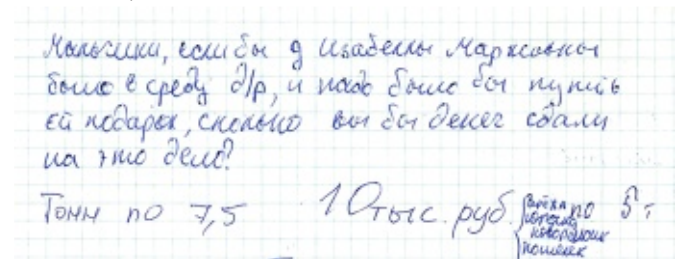 Мальчики, если бы у Изабеллы Марксовны
было в среду д/р, и надо было бы купить
ей подарок, сколько вы бы денег сдали
на это дело?
Тонн по 7,5 10 тыс. руб. по 5 т